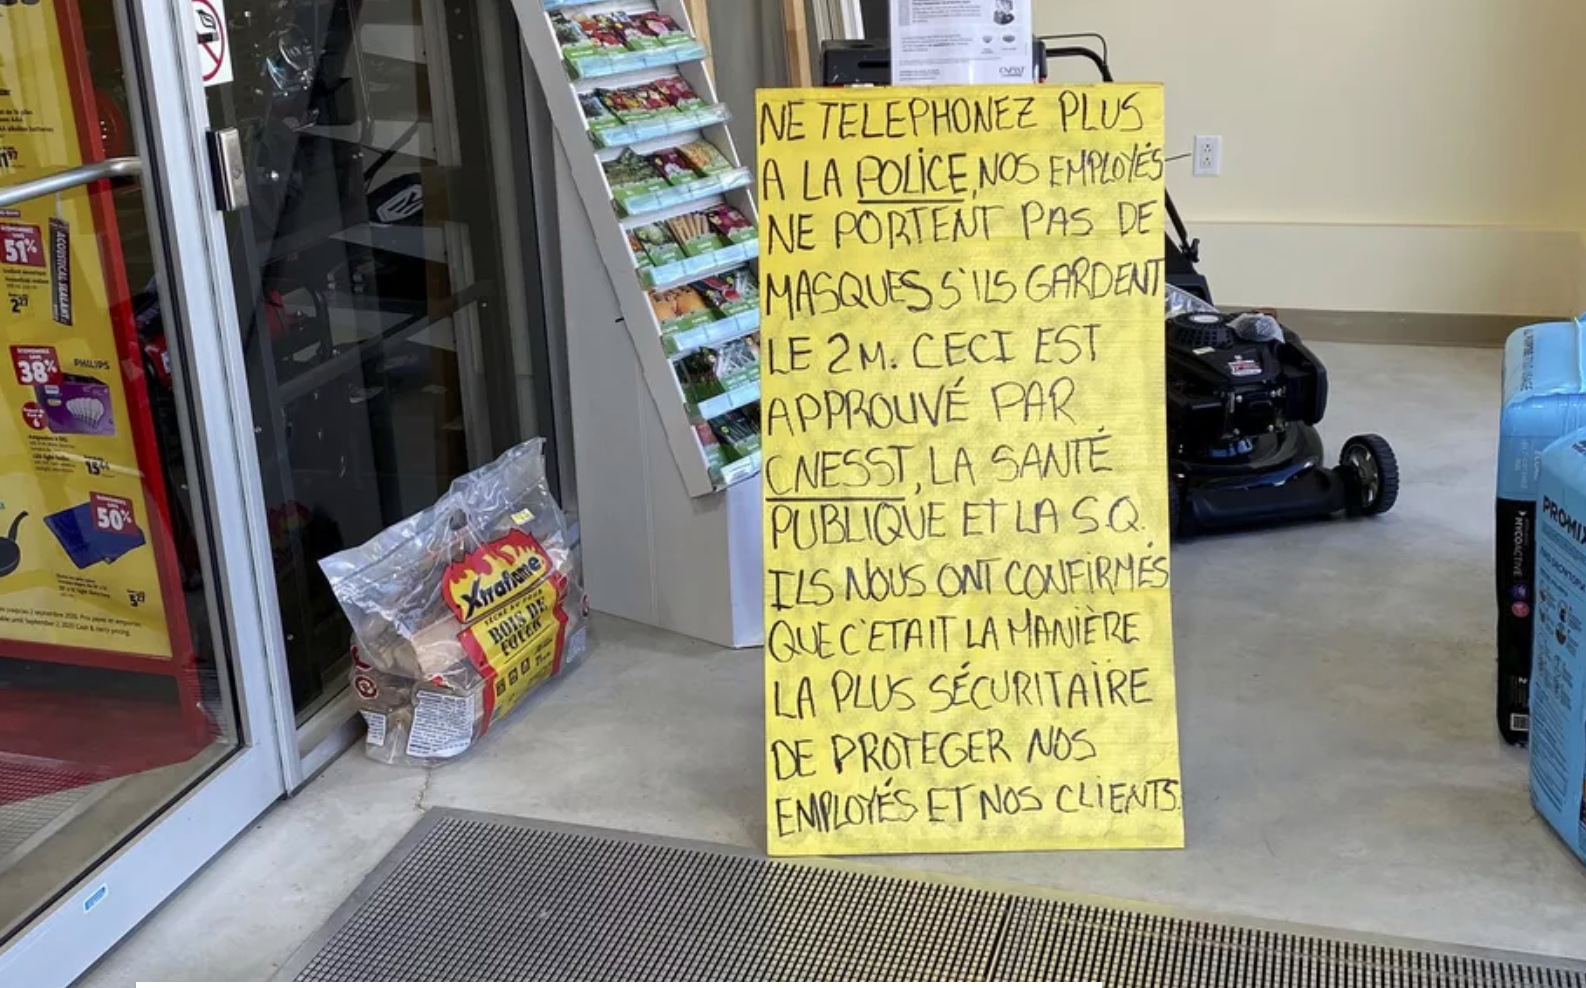 NE TELEPHONEZ PLUS
A LA POLICE, NOS EMPLOYÉS
NE PORTENT PAS DE
MASQUES S'ILS GARDENT
LE 2M. CECI EST
APPROUVÉ PAR
CNESST, LA SANTÉ
PUBLIQUE ET LA S.Q.
ILS NOUS ONT CONFIRMÉS
QUE C'ETAIT LA MANIÈRE
LA PLUS SÉCURITAIRE
DE PROTEGER NOS
EMPLOYÉS ET NOS CLIENTS.
51%
ACOUSTICAL SEALANT
2 27
38%
PHILIPS
15
50%
5 27
Xtraflame
SÉCHÉ AU FOUR
BOIS DE
FOYER
MYCOACTIVE
PROMIX